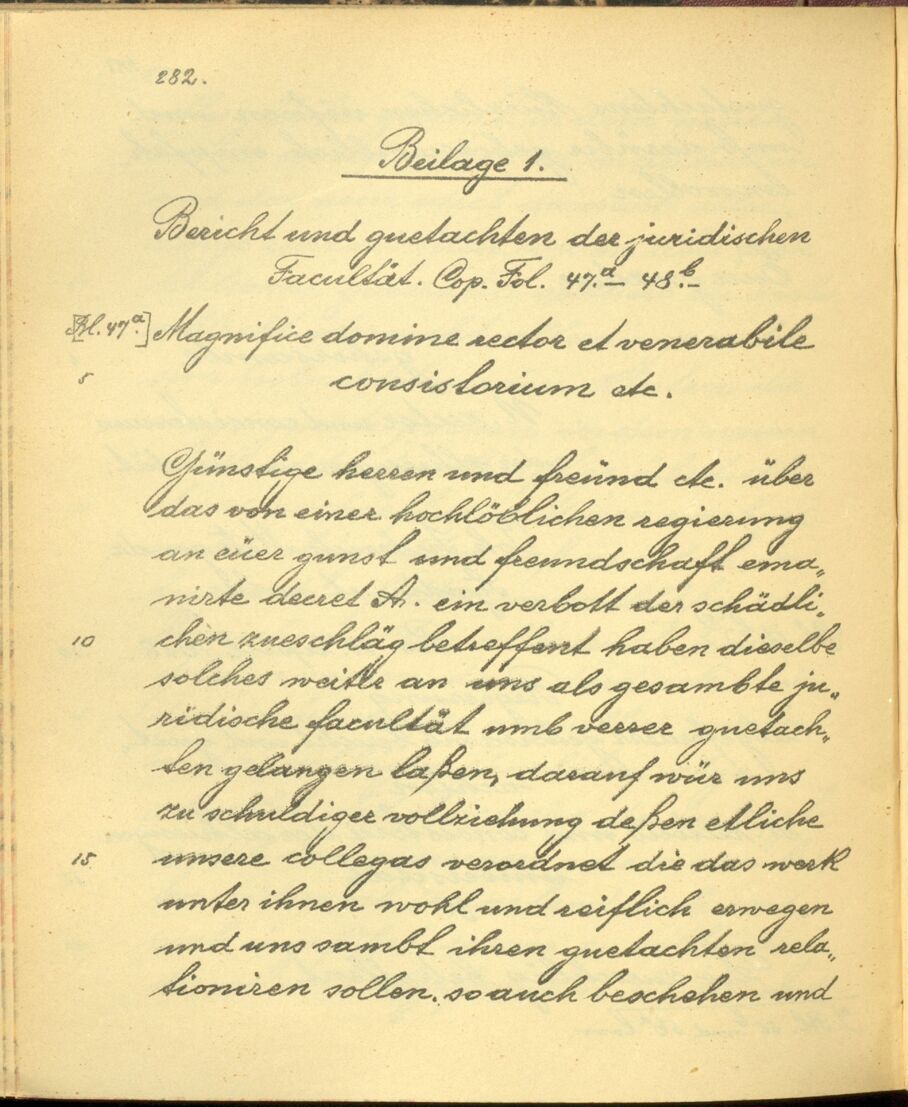 282.
Beilage 1.
Bericht und guetachten der juridischen
Facultät. Cop. Fol. 47.a – 48.b –
[Bl. 47a.] Magnifice domine rector et venerabile
5 consistorium etc.
Günstige herren und freünd etc. über
das von einer hochlöblichen regierung
an eüer gunst und freundschaft ema„
nirte decret A. ein verbott der schädli„
10 chen zueschläg betreffent haben dieselbe
solches weiter an uns als gesambte ju„
ridische facultät umb verrer guetach„
ten gelangen laßen, darauf wür uns
zu schuldiger vollziehung deßen etliche
15 unsere collegas verordnet die das werk
unter ihnen wohl und reiflich erwegen
und uns sambt ihren guetachten rela„
tioniren sollen. so auch beschehen und